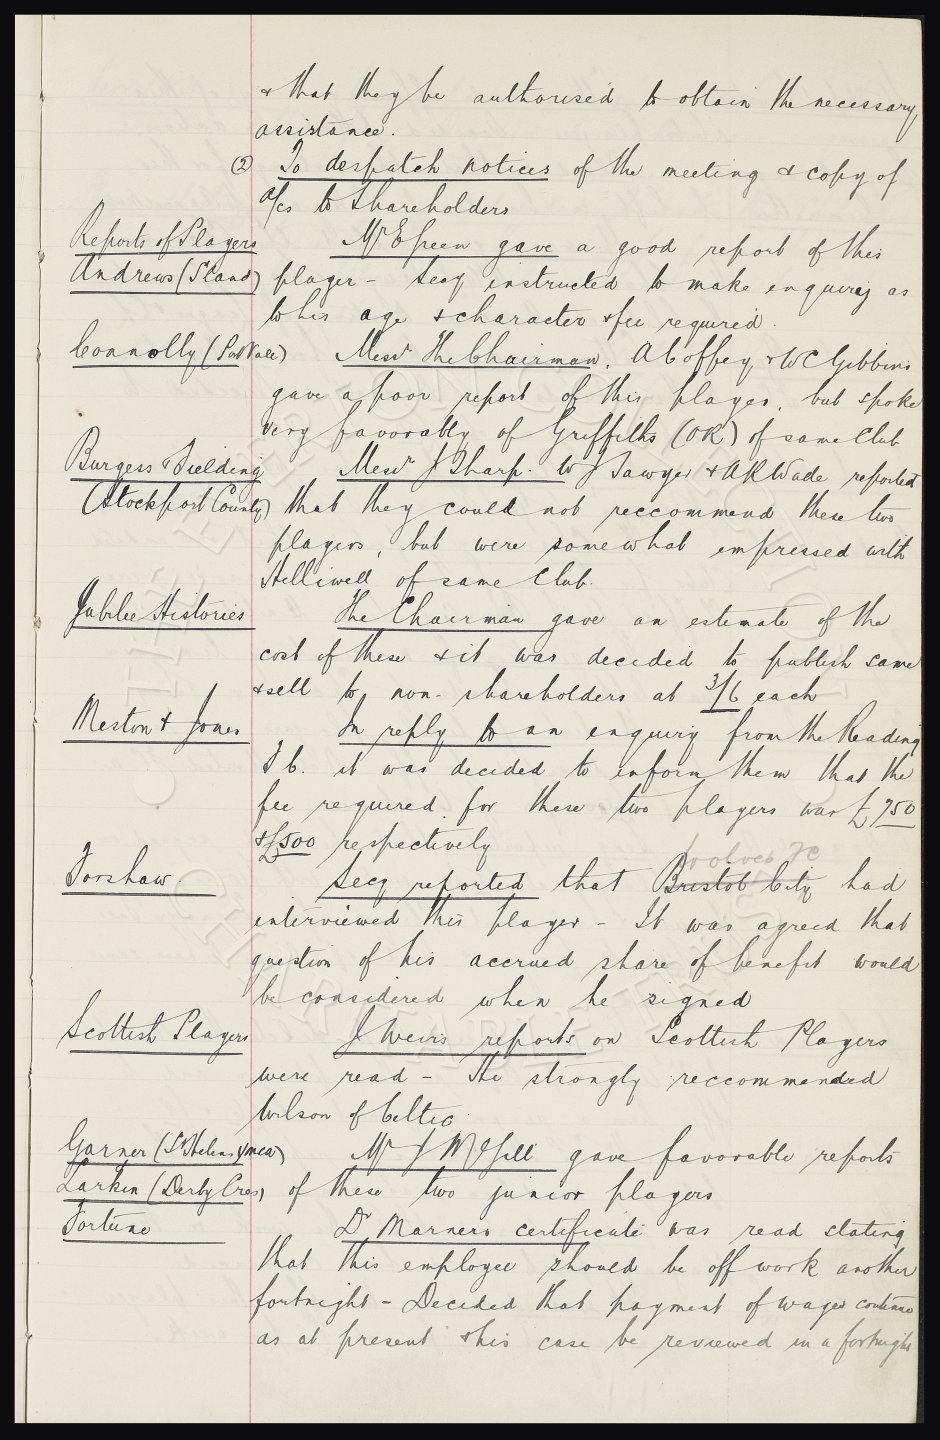 & that they be authorised to obtain the necessary
assistance.
② To despatch notices of the meeting & copy of
a/cs to Shareholders
Reports of Players Mr E Green gave a good report of this
Andrews (S'land) player - Secy instructed to make enquiries as
to his age & character & fee required.
Connolly (Port Vale) Messrs The Chairman, A Coffey & WC Gibbins
gave a poor report of this player, but spoke
very favorably of Griffiths (OR) of same Club
Burgess & Fielding Messrs J Sharp. W J Sawyer & AR Wade reported
(Stockport County) that they could not reccommend these two
players, but were somewhat impressed with
Helliwell of same Club.
Jubilee Histories The Chairman gave an estimate of the
cost of these & it was decided to publish same
& sell to non-shareholders at 3/6 each
Meston & Jones In reply to an enquiry from the Reading
F C. it was decided to inform them that the
fee required for these two players was £750
& £500 respectively
Wolves FC
Forshaw Secy reported that Bristol City had
interviewed this player - It was agreed that
question of his accrued share of benefit would
be considered when he signed
Scottish Players J Weirs reports on Scottish Players
were read - He strongly reccommended
Wilson of Celtic.
Garner (St Helens Ymca) Mr J McGill gave favorable reports
Larkin (Derby Cres) of these two junior players
Fortune Dr Marners certificate was read stating
that this employee should be off work another
fortnight - Decided that payment of wages continue
as at present & his case be reviewed in a fortnight